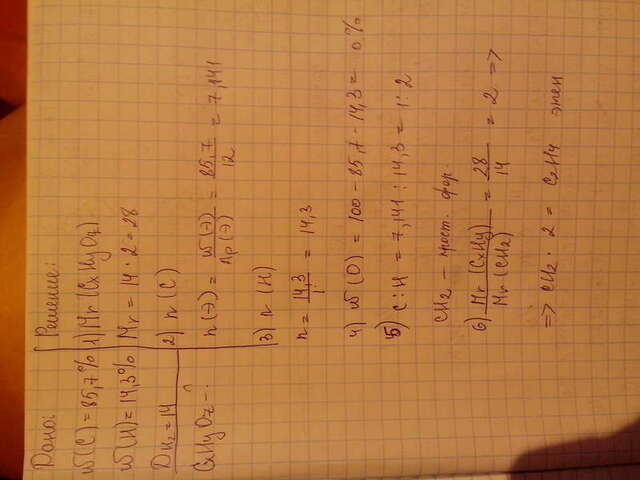 Дано:
w(C) = 85,7%
w(H) = 14,3%
DH2 = 14
CxHyOz - ?
Решение:
1) Mr(CxHyOz)
Mr = 14 · 2 = 28
2) n(C)
n(э) = w(э)/Ar(э) = 85,7/12 = 7,141
3) n(H)
n = 14,3/1 = 14,3
4) w(O) = 100 - 85,7 - 14,3 = 0%
5) C:H = 7,141 : 14,3 = 1:2
CH2 – прост. фор.
6) Mr(CxHy)/Mr(CH2) = 28/14 = 2 =>
=> CH2 · 2 = C2H4 этен